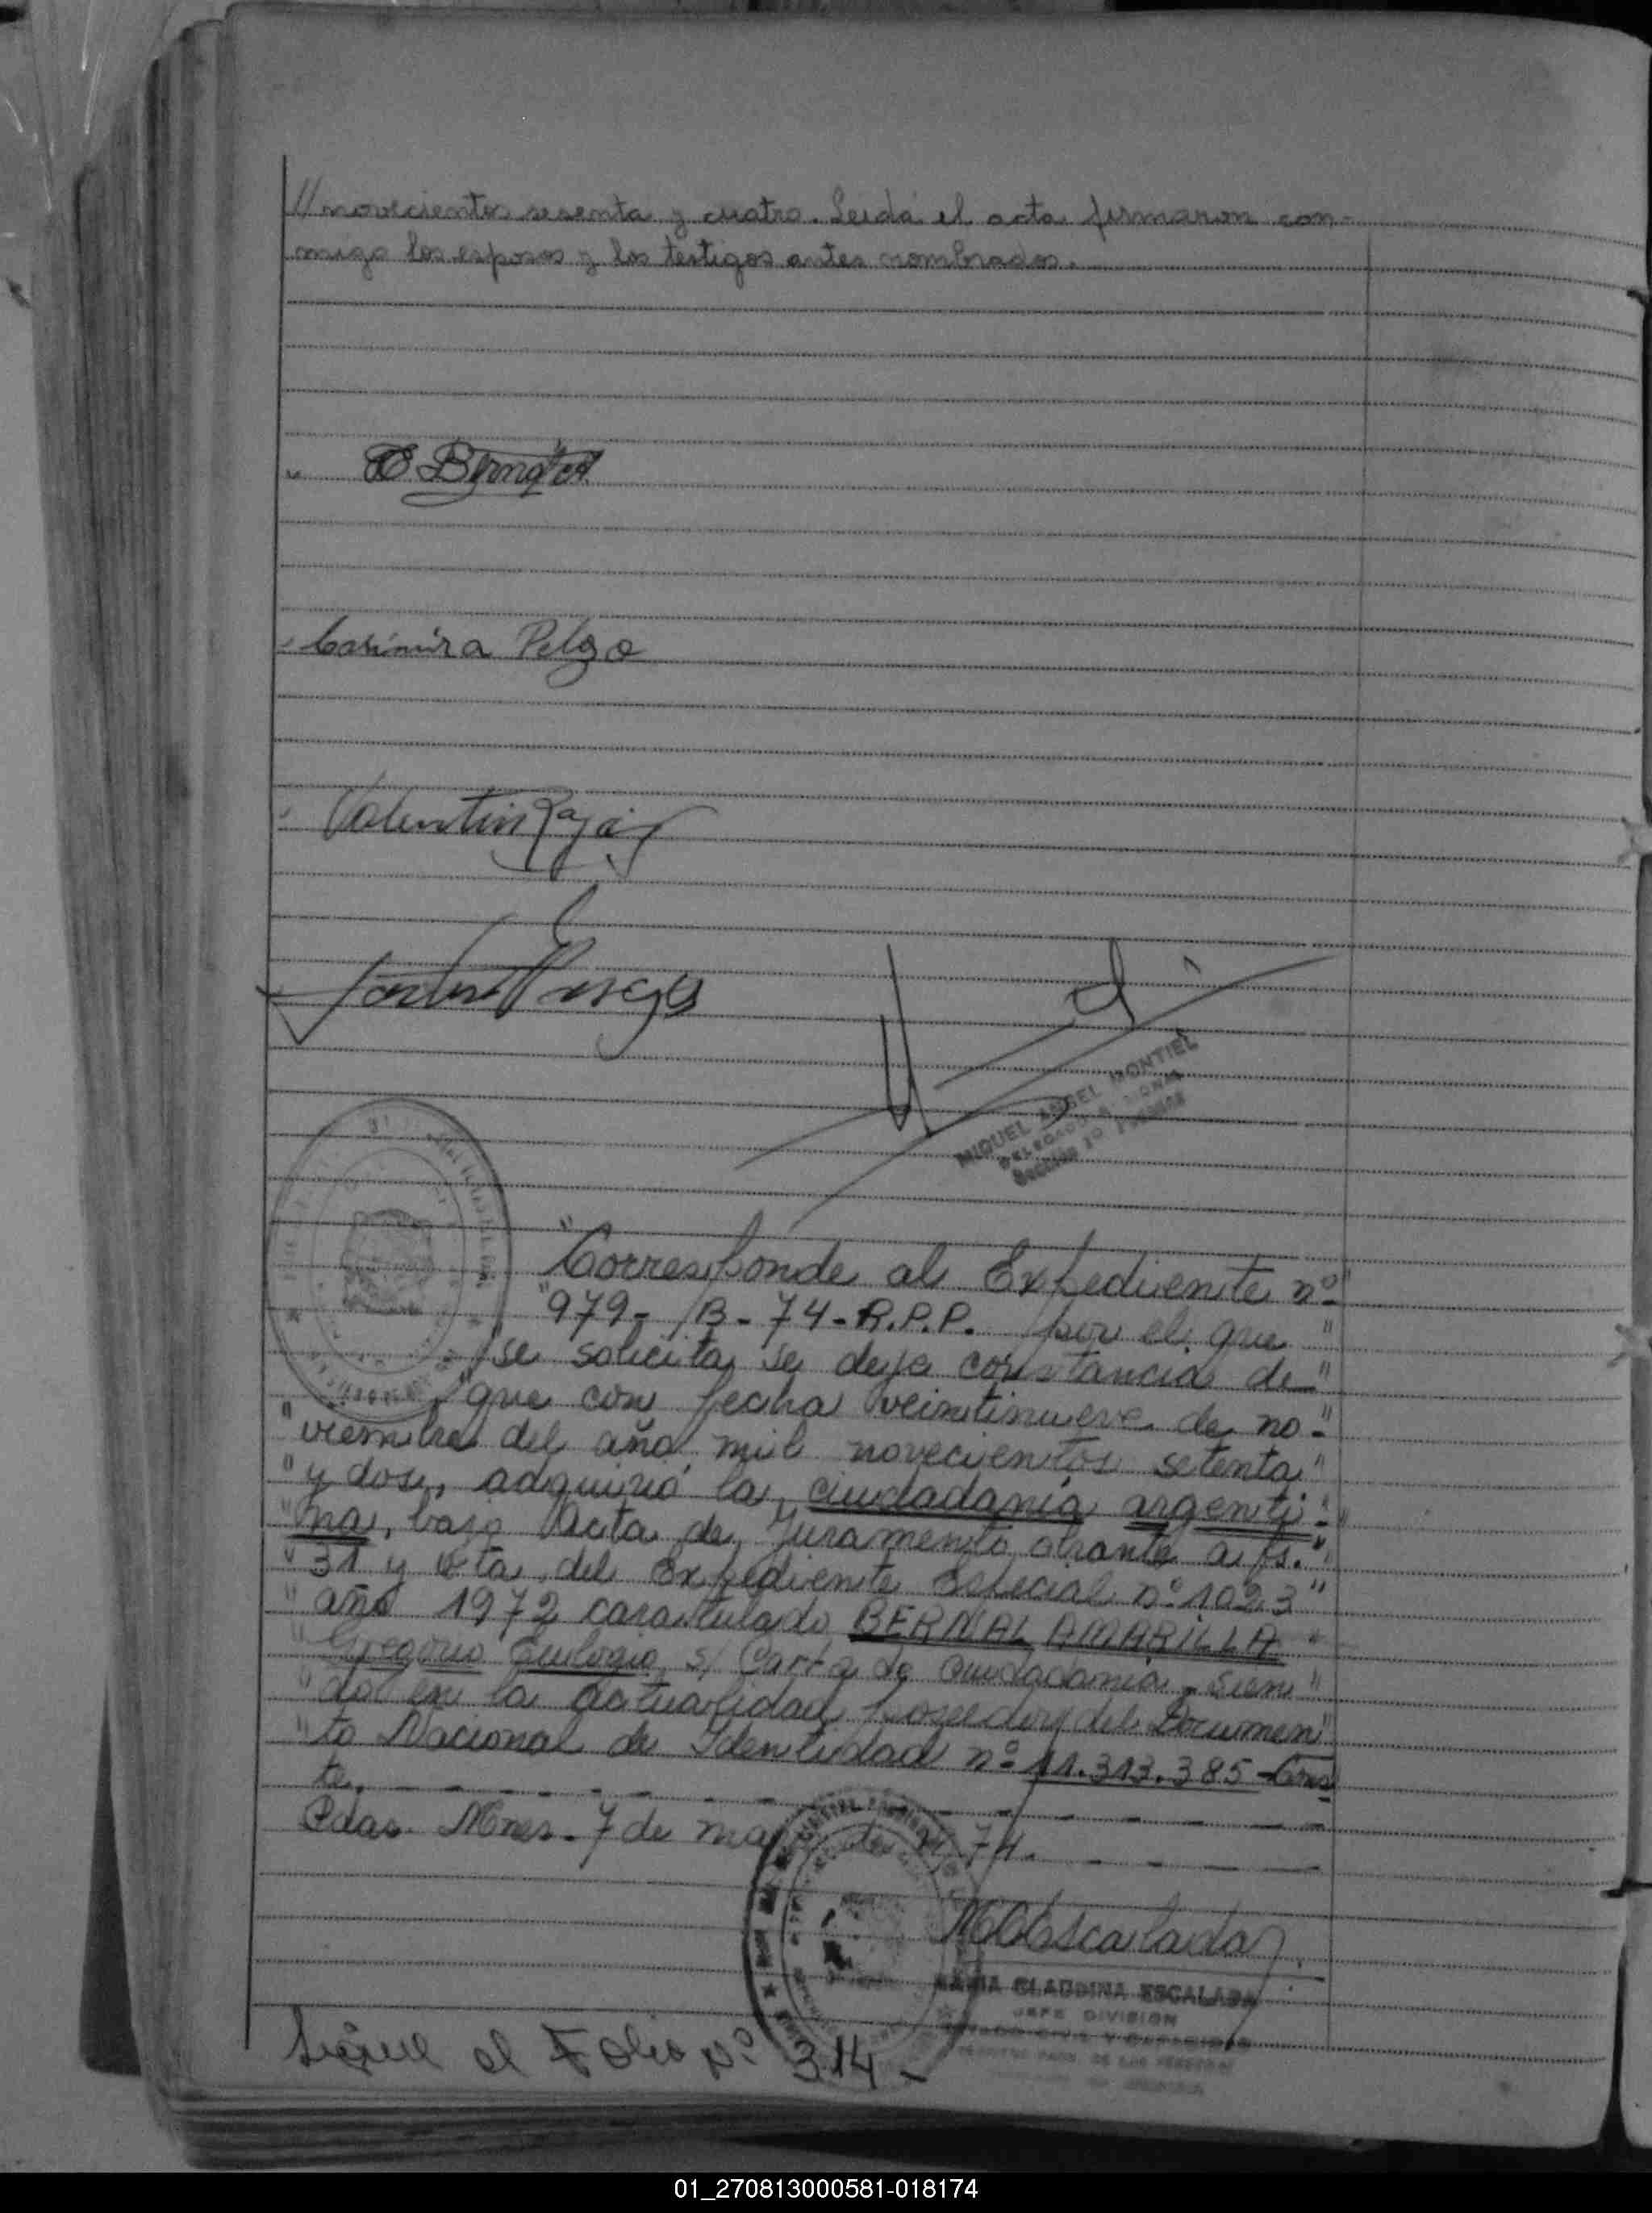 //novecientos sesenta y cuatro. Leida el acta firmaron con-
migo los esposos y los testigos antes nombrados.
Casimira Pelzo
Valentin Rojas
MIGUEL ANGEL MONTIEL
"Corresponde al Expediente nº-"
"979- B- 74-R.P.P. por el que "
"se solicita se deje constancia de-"
"que con fecha veintinueve de no-"
"viembre del año mil novecientos setenta"
"y dos, adquirió la ciudadanía argenti-"
"na, bajo Acta de Juramento obrante a fs."
"31 y vta. del Expediente Especial nº 1023"
"año 1972 caratulado BERNAL AMARILLA "
"Gregorio Eulogio s/ Carta de Ciudadanía, sien"
"do en la actualidad poseedor del Documen"
"to Nacional de Identidad nº 11.313.385- Cons
te.
Pdas. Mnes. 7 de de 1974.
MCEscalada
MARIA CLAUDINA ESCALADA
JEFE DIVISION
Sigue al Folio nº 314-
01_270813000581-018174